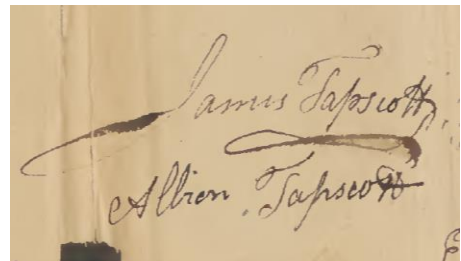 James Tapscott
Albion Tapscott